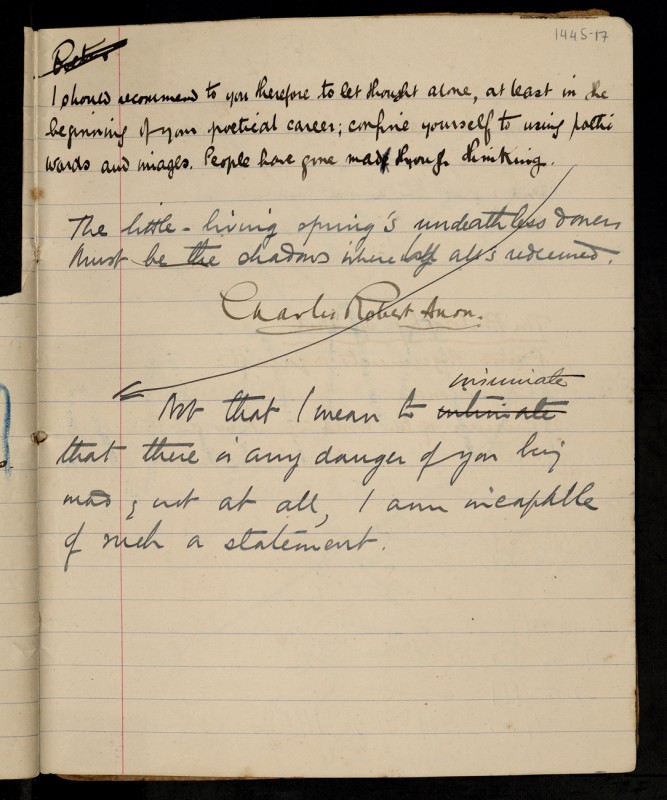 144S-17
I should recommend to you therefore to let thought alone, at least in the
beginning of your poetical career; confine yourself to using poetic
words and images. People have gone mad through thinking.
The little-living spring's undeathless
Must be the shadows where all's redeemed.
Charles Robert Anon.
insinuate
Not that I mean to intimate
that there is any danger of you being
mad; not at all, I am incapable
of such a statement.